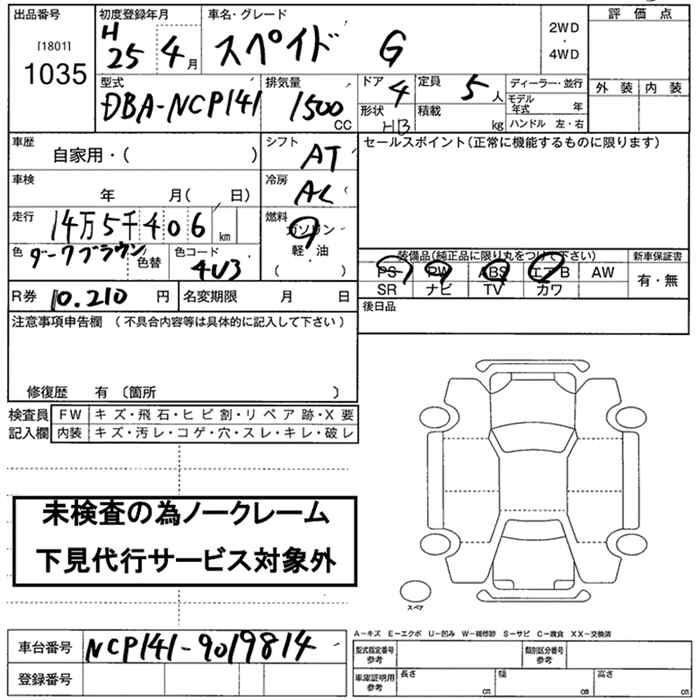 出品番号 初度登録年月 車名・グレード 評価点
[1801] H 25 4月 スペイド G 2WD ・ 4WD
1035 外装 内装
型式 排気量 ドア 4 定員 5人 ディーラー・並行
DBA-NCP141 1500 CC モデル年式 年
形状 HB 積載 kg ハンドル 左・右
車歴 シフト セールスポイント(正常に機能するものに限ります)
自家用・( ) AT
車検 冷房
年 月( 日) AC
走行 燃料
14万5千406km ガソリン
色 ダークブラウン 色替 色コード 4U3 軽・油 ( )
装備品(純正品に限り丸をつけて下さい) 新車保証書
PS PW ABS エアB AW 有・無
SR ナビ TV カワ
R券 10.210円 名変期限 月 日
後日品
注意事項申告欄 (不具合内容等は具体的に記入して下さい)
修復歴 有〔箇所 〕
検査員 FW キズ・飛石・ヒビ割・リペア跡・X要
記入欄 内装 キズ・汚レ・コゲ・穴・スレ・キレ・破レ
未検査の為ノークレーム
下見代行サービス対象外
スペア
A-キズ E-エクボ U-凹み W-補修跡 S-サビ C-腐食 XX-交換済
車台番号 NCP141-9019814
登録番号
型式指定番号 参考 類別区分番号 参考
車庫証明用 参考 長さ cm 幅 cm 高さ cm